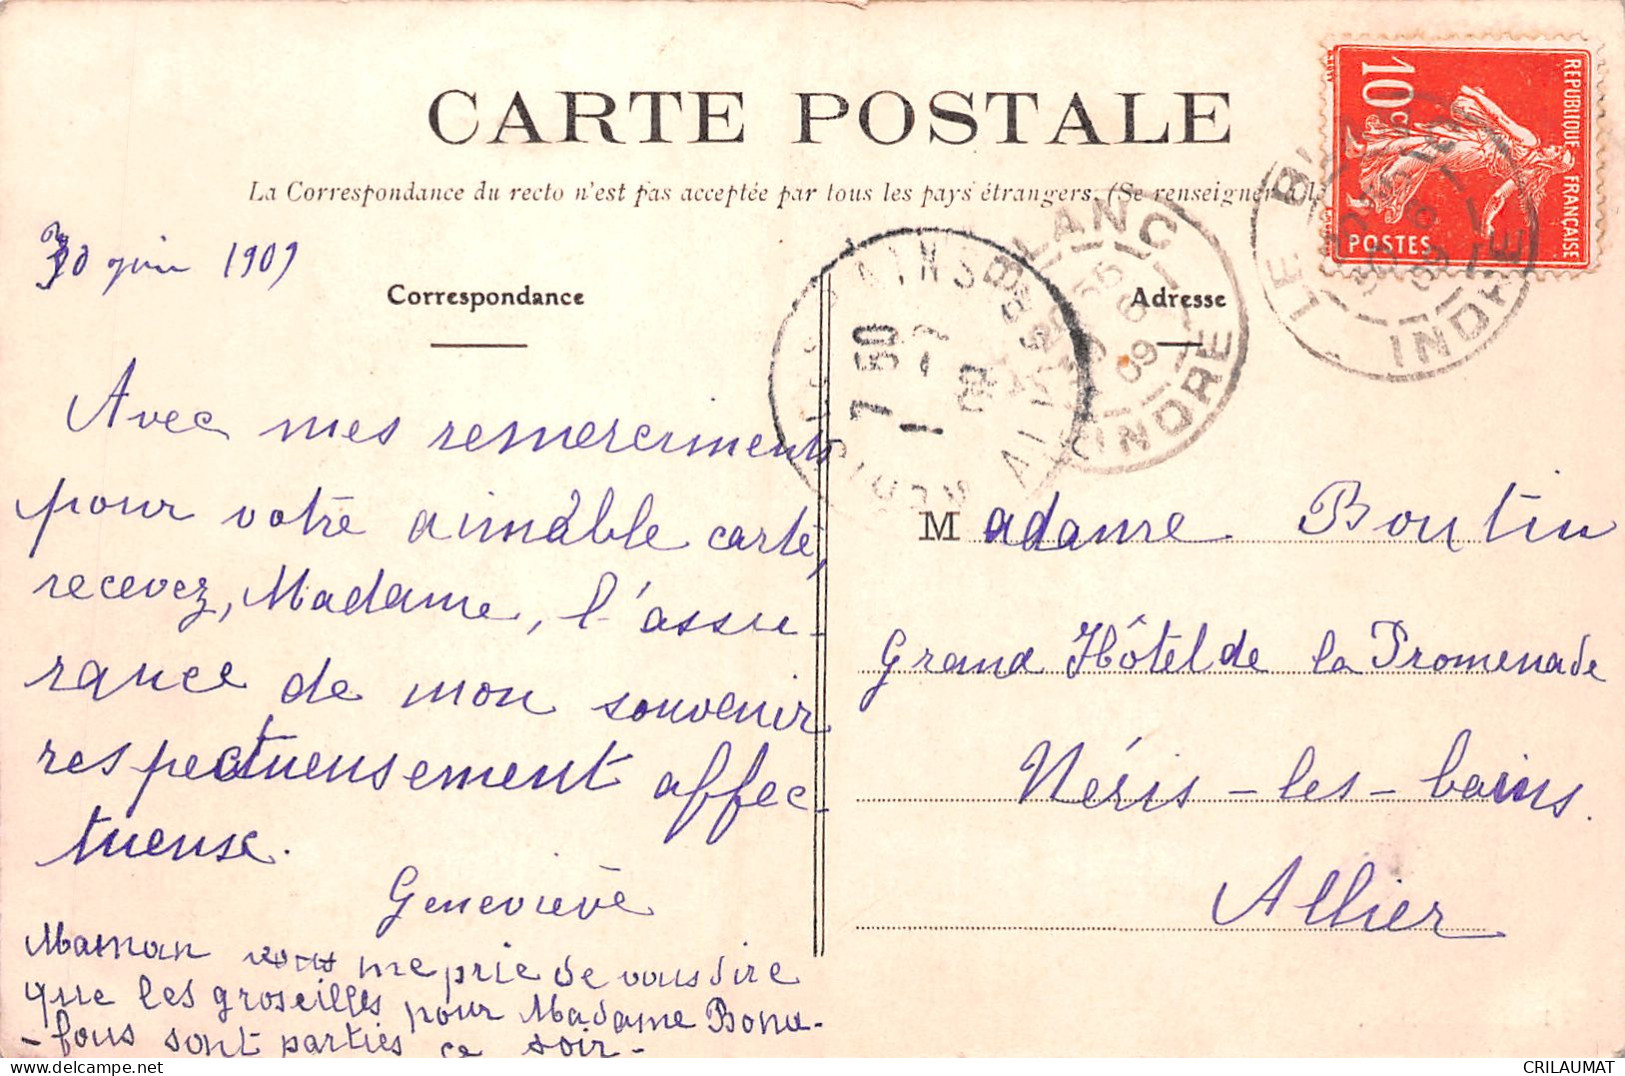 CARTE POSTALE
La Correspondance du recto n'est pas acceptée par tous les pays étrangers. (Se renseigner
30 juin 1909
Correspondance
Avec mes remerciments
pour votre aimable carte,
recevez, Madame, l'assu-
rance de mon souvenir
respectueusement affec-
tueuse.
Geneviève
Maman vous me prie de vous dire
que les groseilles pour Madame Bonu-
-fous sont parties ce soir-
Adresse
Madame Boutin
Grand Hôtel de la Promenade
Néris-les-bains.
Allier
REPUBLIQUE FRANÇAISE
10c
POSTES
LE BLANC
INDRE
BLANC
INDRE
7 50
CRILAUMAT